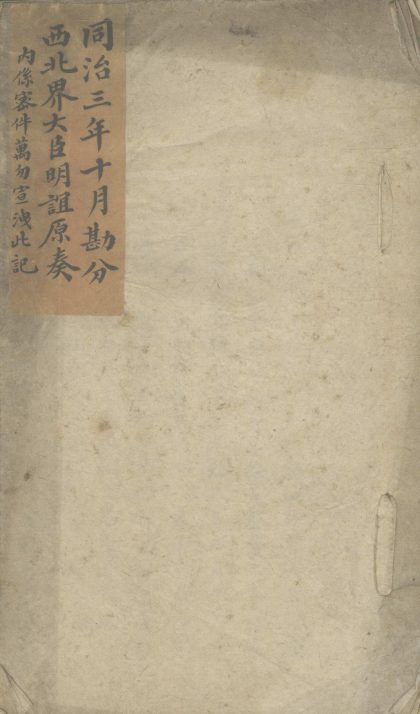 同治三年十月勘分
西北界大臣明誼原奏
內係密件萬勿宣洩此記